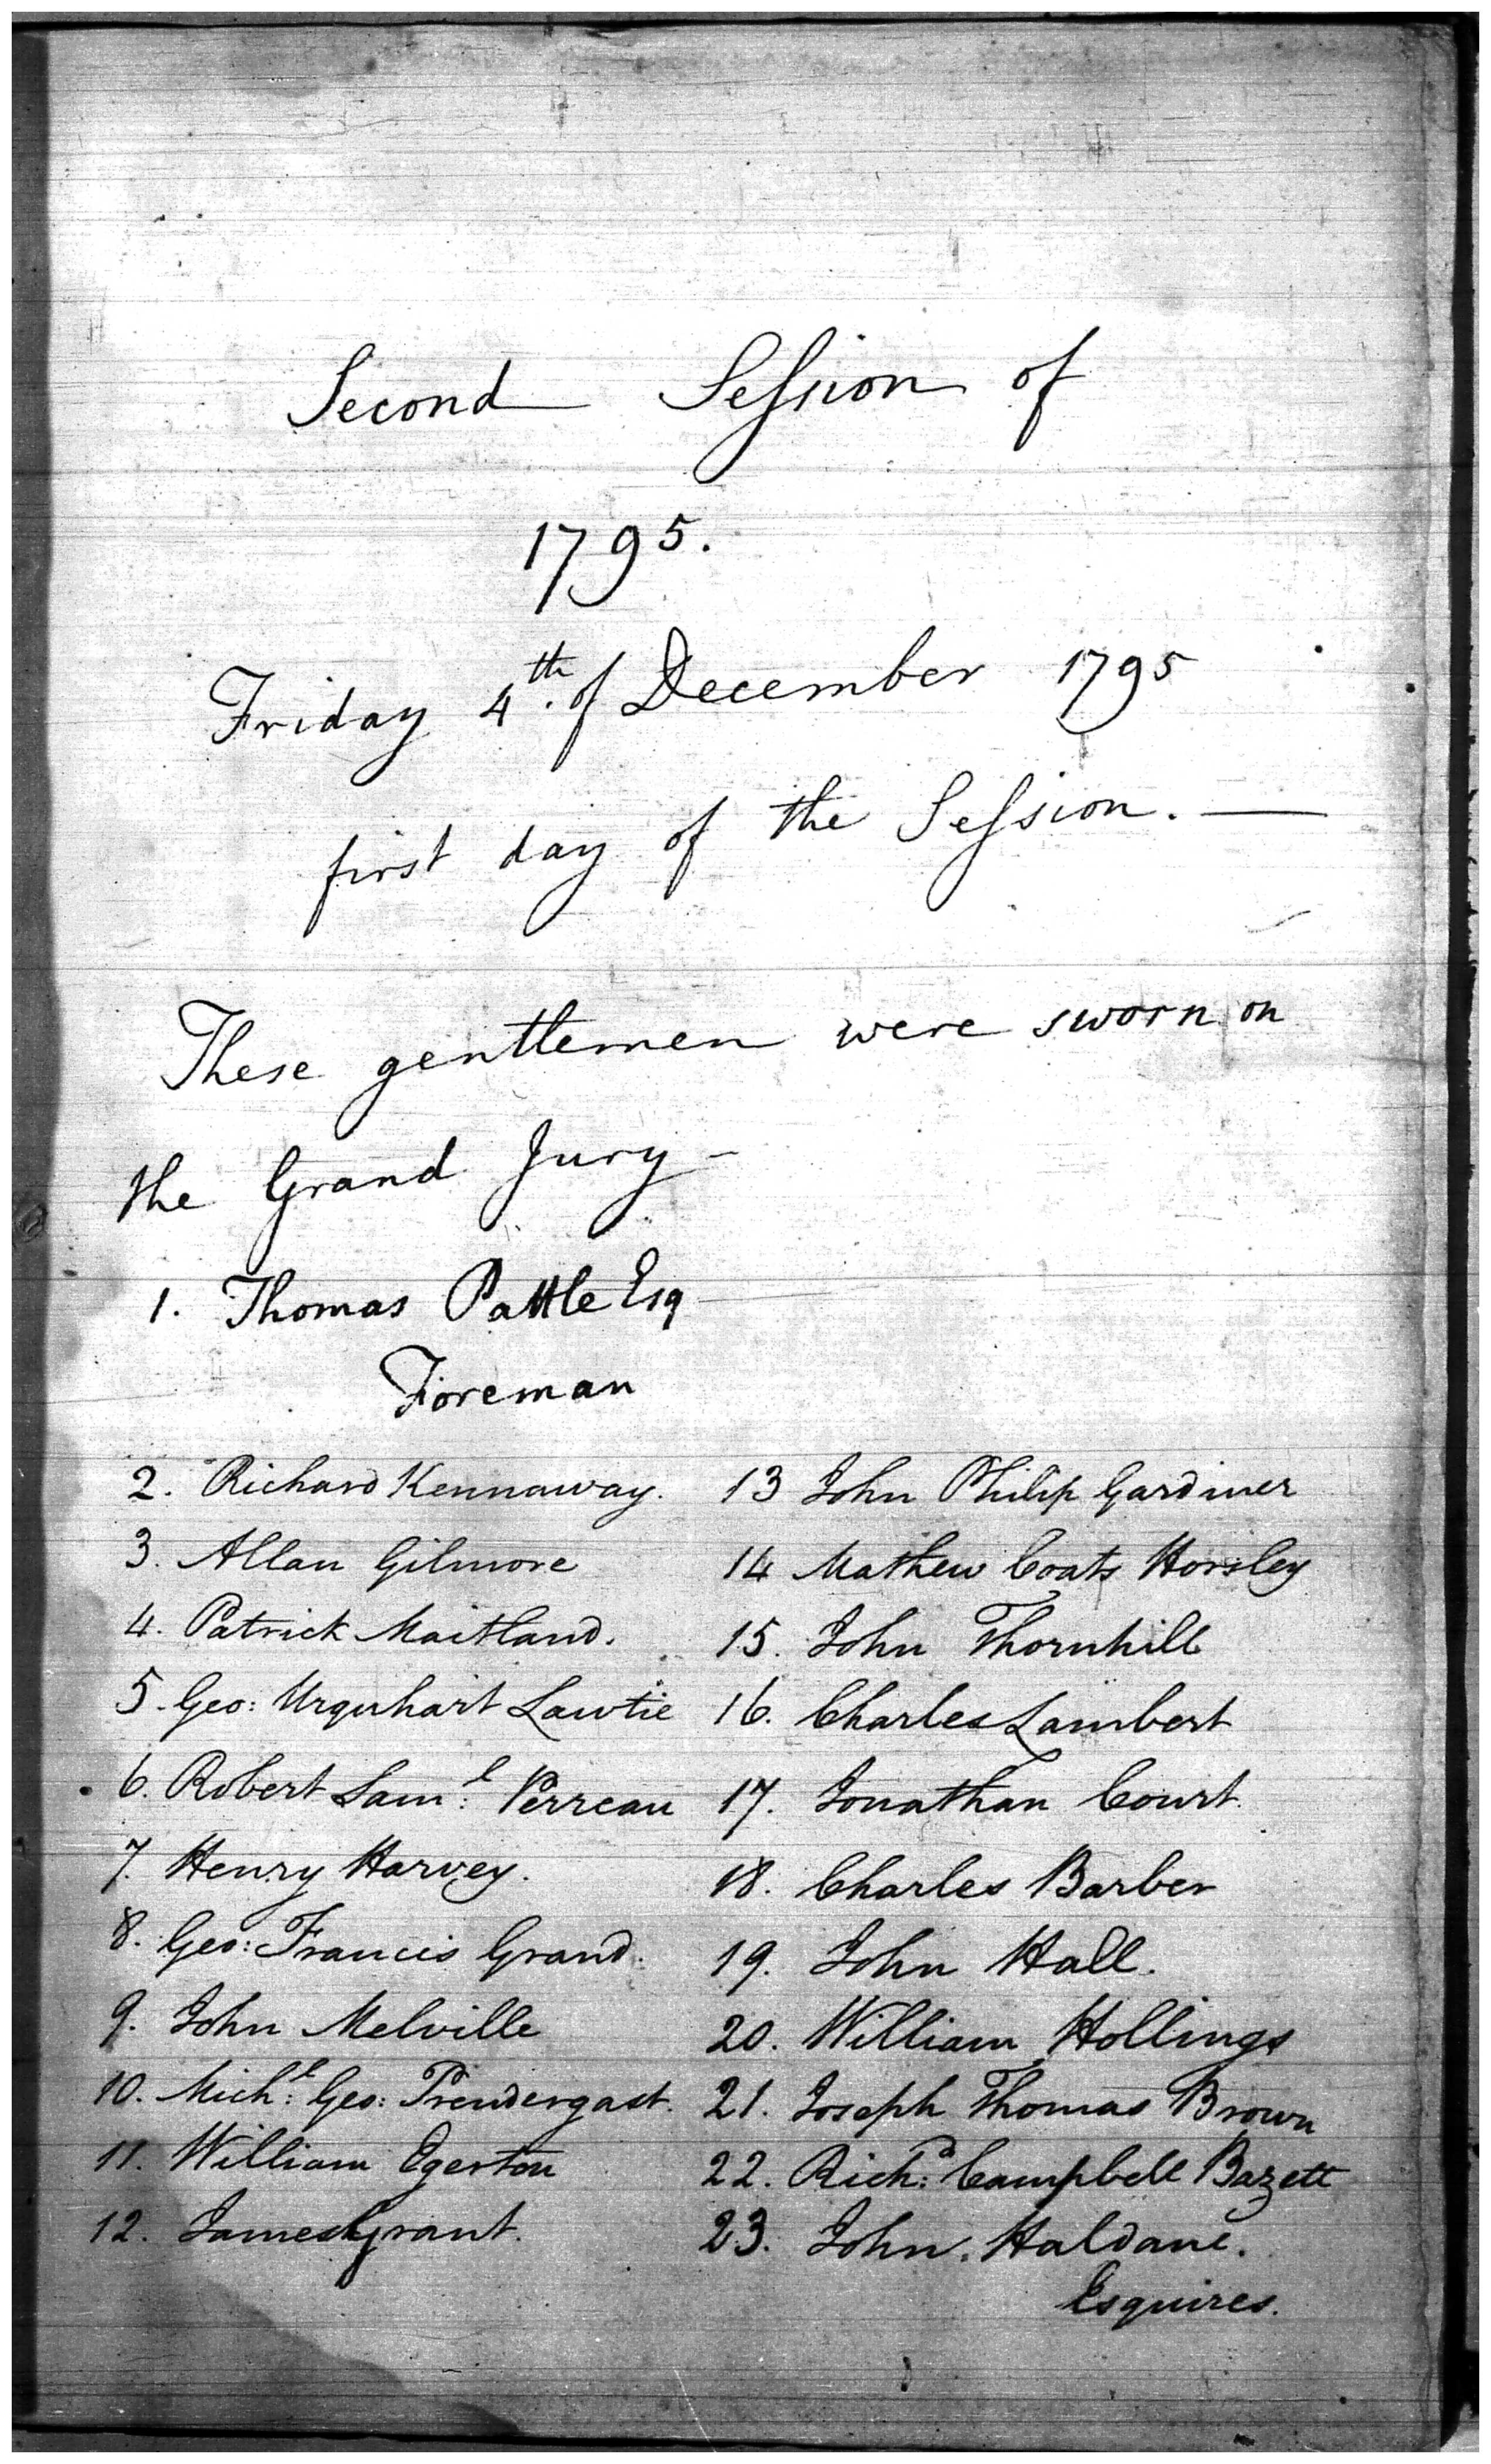 Second Session of
1795.
Friday 4th. of December 1795
first day of the Session. —
These gentlemen were sworn on
the Grand Jury –
1. Thomas Pattle Esq
Foreman
2. Richard Kennaway.
3. Allan Gilmore
4. Patrick Maitland.
5. Geo: Urquhart Lawtie
6. Robert Sam:l Perreau
7. Henry Harvey.
8. Geo: Francis Grand.
9. John Melville
10. Mich:l Geo: Prendergast.
11. William Egerton
12. James Grant.
13 John Philip Gardiner
14 Mathew Coats Horsley
15. John Thornhill
16. Charles Lambert
17. Jonathan Court.
18. Charles Barber
19. John Hall.
20. William Hollings
21. Joseph Thomas Brown
22. Rich:d Campbell Bazett
23. John. Haldane.
Esquires.